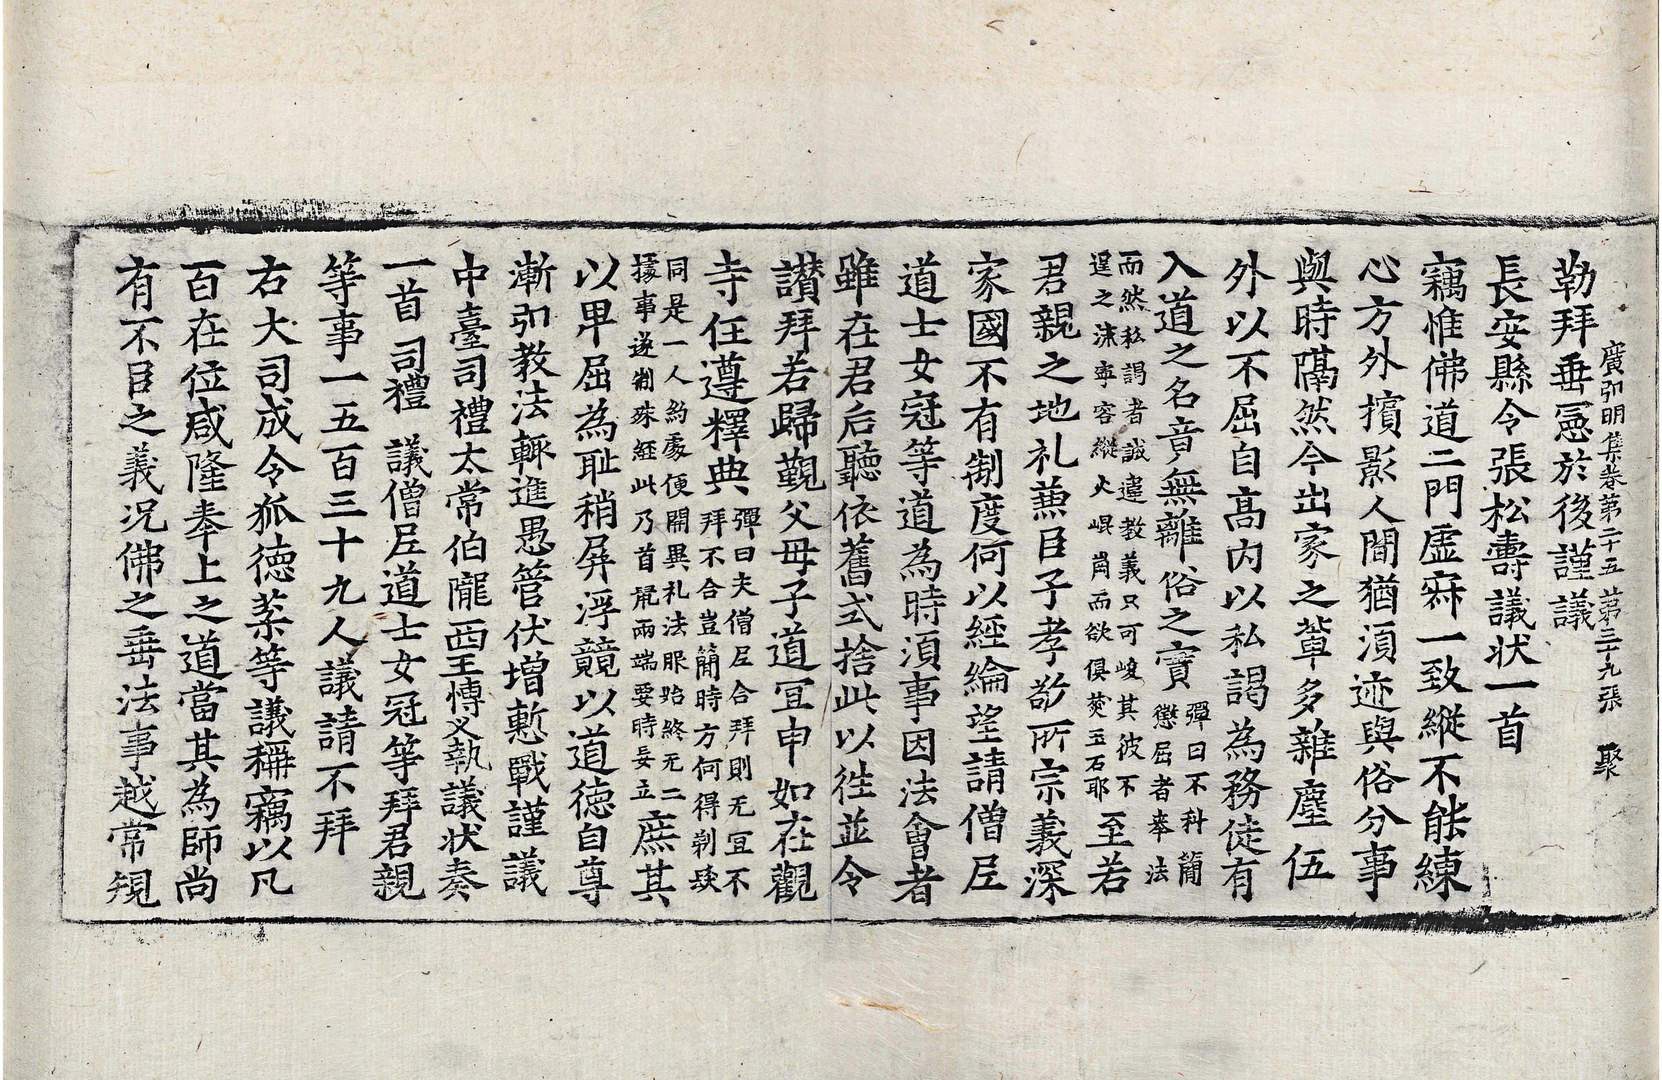 廣弘明集卷第二十五 第三十九張 聚
勒拜垂憲於後謹議
長安縣令張松壽議狀一首
竊惟佛道二門虛寂一致縱不能練
心方外擯影人間猶須迹與俗分事
與時隔然今出家之輩多雜塵伍
外以不屈自高内以私謁為務徒有
入道之名音無離俗之實
彈曰不科簡懲屈者奉法
而然私謁者誠違教義只可峻其彼不
逞之洙寧容縱火崐崗而欲俱焚玉石耶
至若
君親之地礼兼臣子孝敬所宗義深
家國不有制度何以經綸望請僧尼
道士女冠等道為時須事因法會者
雖在君后聽依舊式捨此以往並令
讃拜若歸覲父母子道宜申如在觀
寺任遵釋典
彈曰夫僧尼合拜則无宜不
拜不合豈簡時方何得剃𨐓
同是一人約處便開異礼法服始終无二
據事遂制殊經此乃首鼠兩端要時妄立
庶其
以卑屈為耻稍屏浮競以道德自尊
漸弘教法輙進愚管伏增慙戰謹議
中臺司禮太常伯隴西王慱叉執議狀奏
一首 司禮 議僧尼道士女冠等拜君親
等事一五百三十九人議請不拜
右大司成令狐德棻等議稱竊以凡
百在位咸隆奉上之道當其為師尚
有不臣之義况佛之垂法事越常規